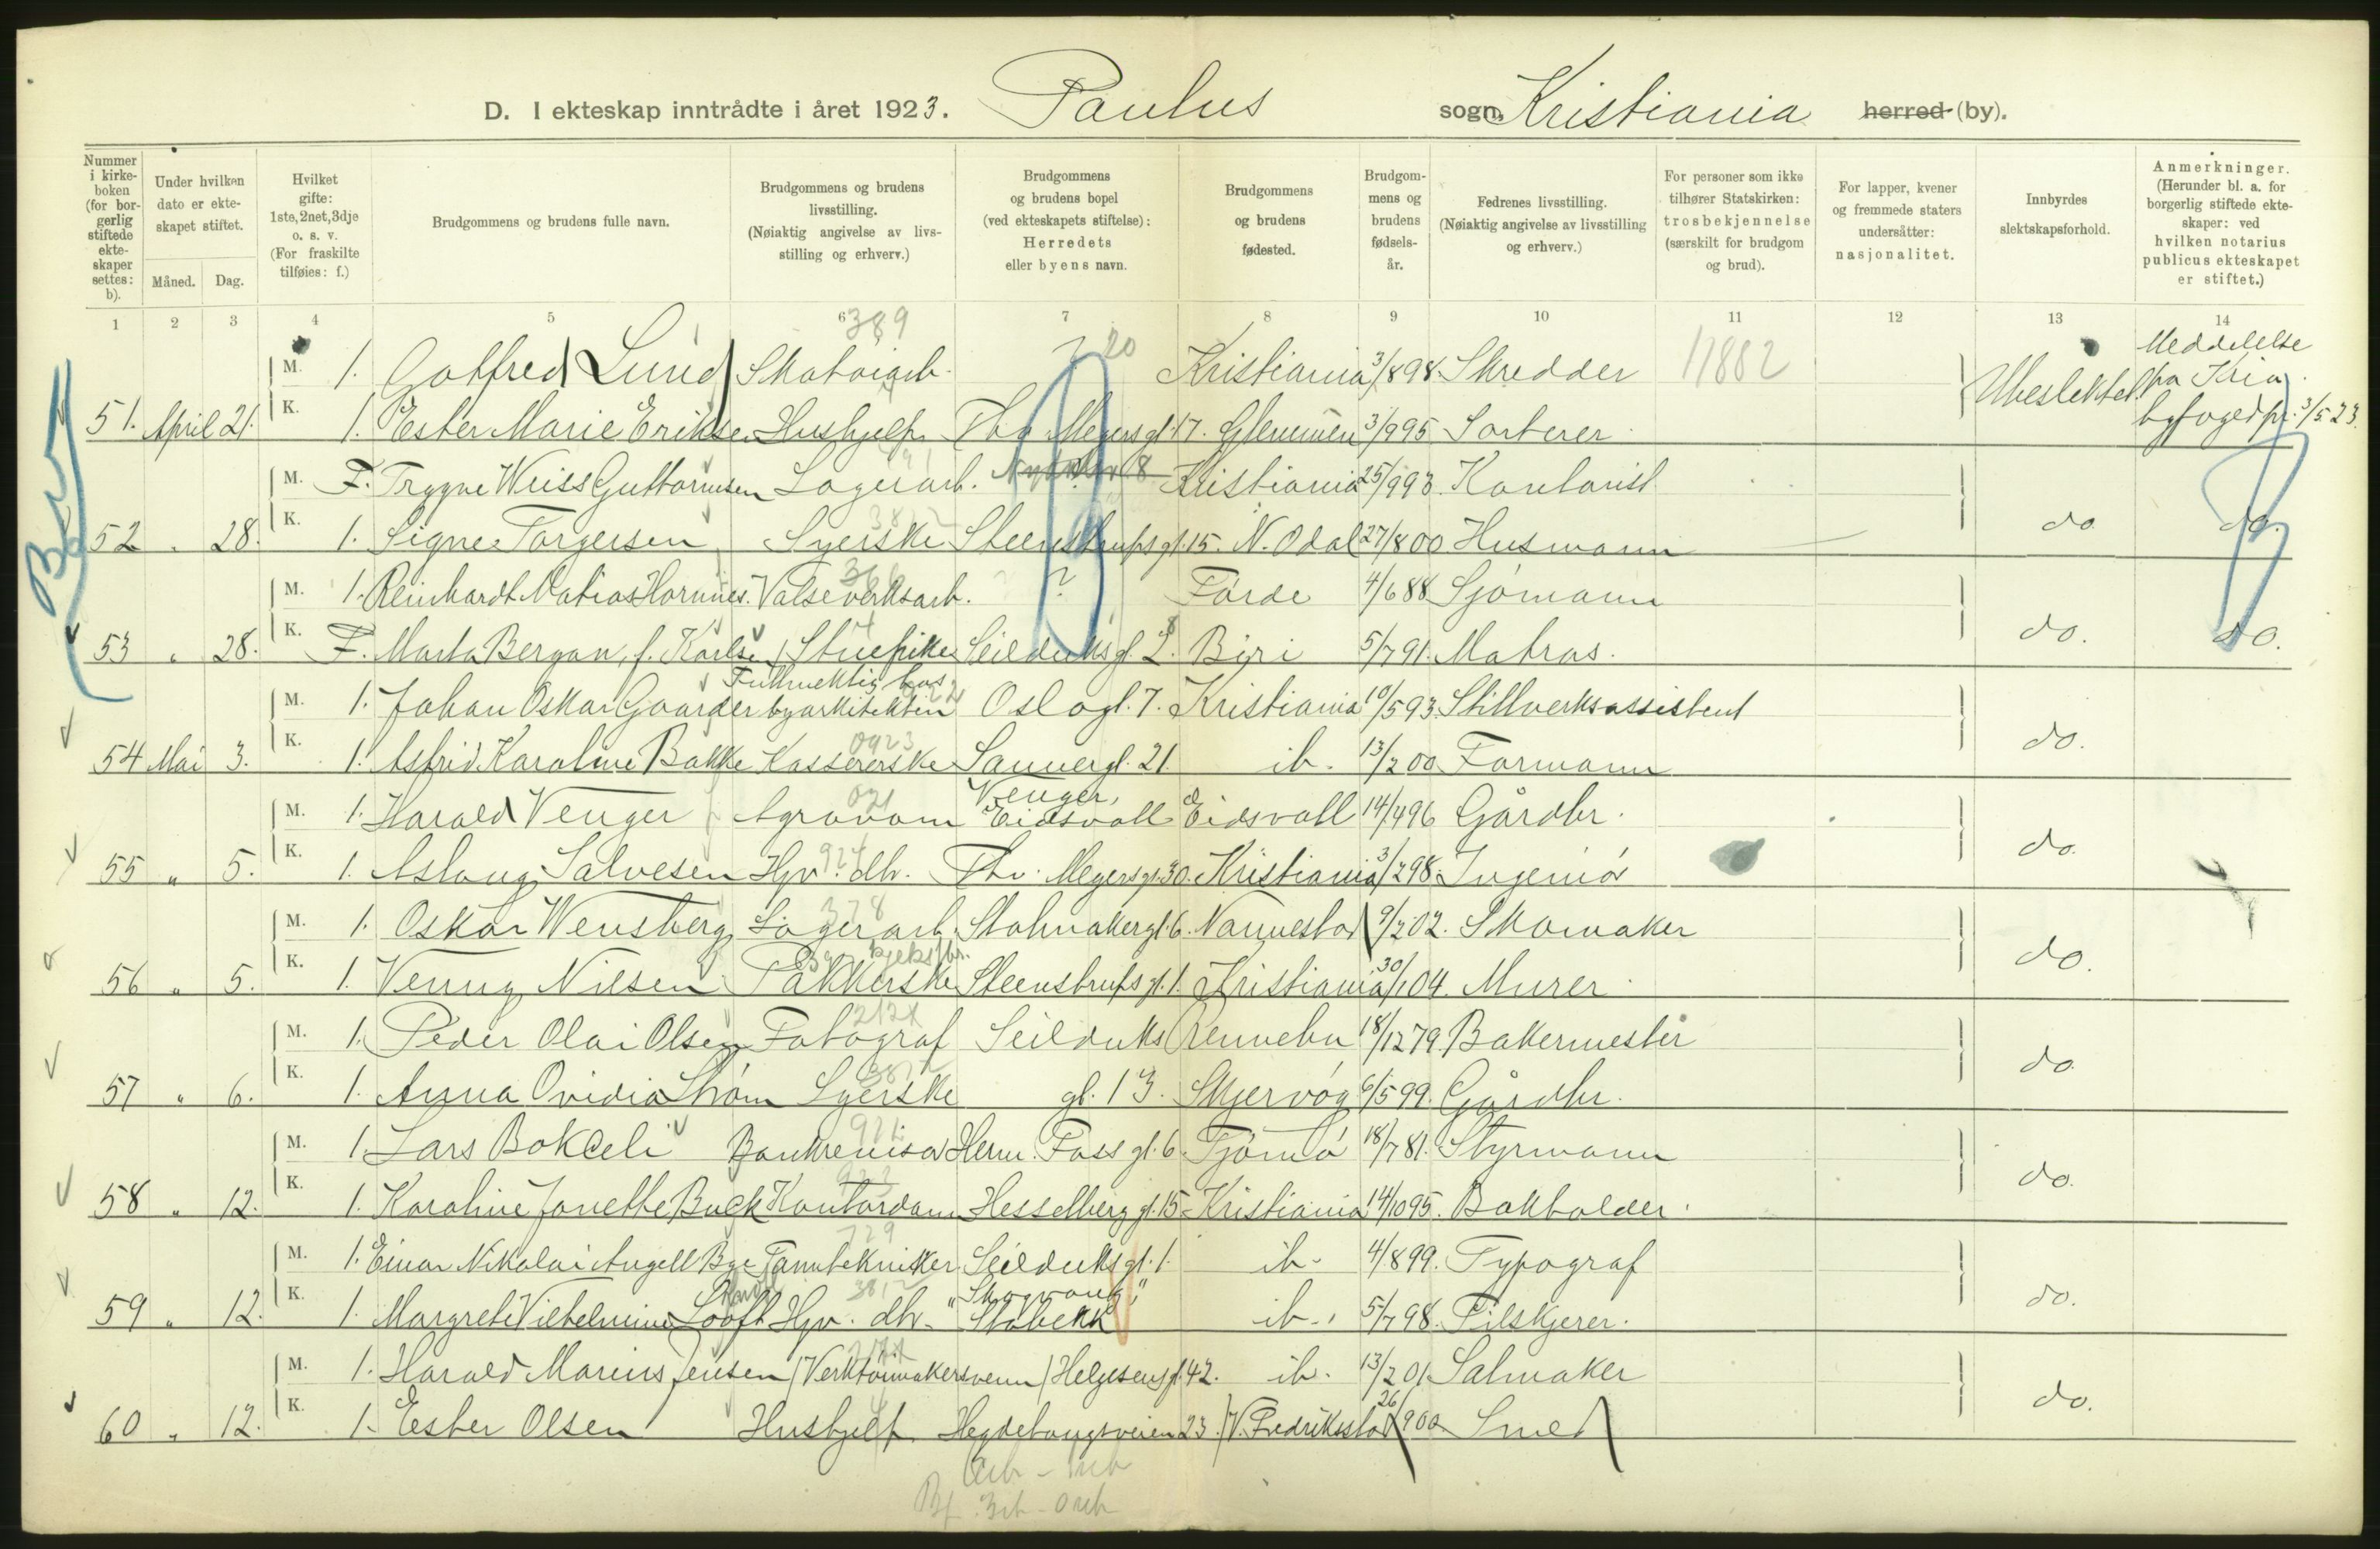 D. I ekteskap inntrådte i året 1923. Paulus sogn, Kristiania herred (by).
Nummer i kirkeboken (for borgerlig stiftede ekteskaper settes: b).
Under hvilken dato er ekteskapet stiftet.
Måned. Dag.
Hvilket gifte: 1ste, 2net, 3dje o. s. v. (For fraskilte tilføies: f.)
Brudgommens og brudens fulle navn.
Brudgommens og brudens livsstilling. (Nøiaktig angivelse av livsstilling og erhverv.)
Brudgommens og brudens bopel (ved ekteskapets stiftelse): Herredets eller byens navn.
Brudgommens og brudens fødested.
Brudgommens og brudens fødselsår.
Fedrenes livsstilling. (Nøiaktig angivelse av livsstilling og erhverv.)
For personer som ikke tilhører Statskirken: trosbekjennelse (særskilt for brudgom og brud).
For lapper, kvener og fremmede staters undersåtter: nasjonalitet.
Innbyrdes slektskapsforhold.
Anmerkninger. (Herunder bl. a. for borgerlig stiftede ekteskaper: ved hvilken notarius publicus ekteskapet er stiftet.)
1 2 3 4 5 6 7 8 9 10 11 12 13 14
389
M. 1. Gotfred Lund Skotøiarb. ? 20 Kristiania 3/898 Skredder 11882 Meddelelse fra Kria.
51. April 21. K. 1. Ester Marie Eriksen Hushjelp Thv Meyersgt. 17. Glemmen 3/995 Sorterer. Ubeslektet. byfogedpr. 3/5 23.
M. F. Trygve Weiss Guttormsen Lagerarb. Kristiania 25/993 Kontorist
52 " 28. K. 1. Signe Torgersen Syerske Steenstrupsgt. 15. N. Odal 27/800 Husmann do do.
M. 1. Reinhardt Matias Hornnes. Valseverksarb. ? Førde 4/688 Sjømann
53 " 28. K. F. Marta Bergan, f. Karlsen Stuepike Seilduksgt. 2. Biri 5/791. Matros. do. do.
Fullmektig hos
M. 1. Johan Oskar Gaarder byarkitekten Oslogt. 7. Kristiania 10/593. Stillverksassistent
0923
54 Mai 3. K. 1. Astrid Karoline Bakke Kassererske Sannergt. 21. ib. 13/200 Formann do.
021 Venger,
M. 1. Harald Venger Agronom Eidsvoll Eidsvoll 14/496 Gårdbr.
55 " 5. K. 1. Aslaug Salvesen Hjv. dtr. Thv. Meyersgt. 30. Kristiania 3/298. Ingeniør do.
378
M. 1. Oskar Wensberg Lagerarb. Stolmakergt. 6. Nannestad 9/202. Skomaker
kjeksfbr.
56 " 5. K. 1. Venny Nilsen Pakkerske Steenstrupsgt. 1. Kristiania 30/104. Murer. do.
M. 1. Peder Olai Olsen Fotograf Seilduks Rennebu 18/1279. Bakermester
57 " 6. K. 1. Anna Ovidia Strøm Syerske gt. 13. Skjervøy 6/599. Gårdbr. do.
M. 1. Lars Bokceli Bankrevisor Herm. Foss gt. 6 Tjømø 18/781. Styrmann
58 " 12. K. 1. Karoline Janette Buck Kontordame Hesselberggt. 15 Kristiania 14/1095. Bokholder. do.
729
M. 1. Einar Nikolai Angell Bye Tanntekniker Seilduksgt. 1. ib. 4/899. Typograf
59 " 12. K. 1. Margrete Vilhelmine Looft Hjv. dtr. "Skogvang," Stabekk ib. 5/798. Filskjerer. do.
M. 1. Harald Marius Jensen Verktøimakersvenn Helgesensgt. 42. ib. 13/201 Salmaker
60 " 12. K. 1. Ester Olsen Hushjelp Hegdehaugsveien 23. V. Fredrikstad 26/900 Smed do.